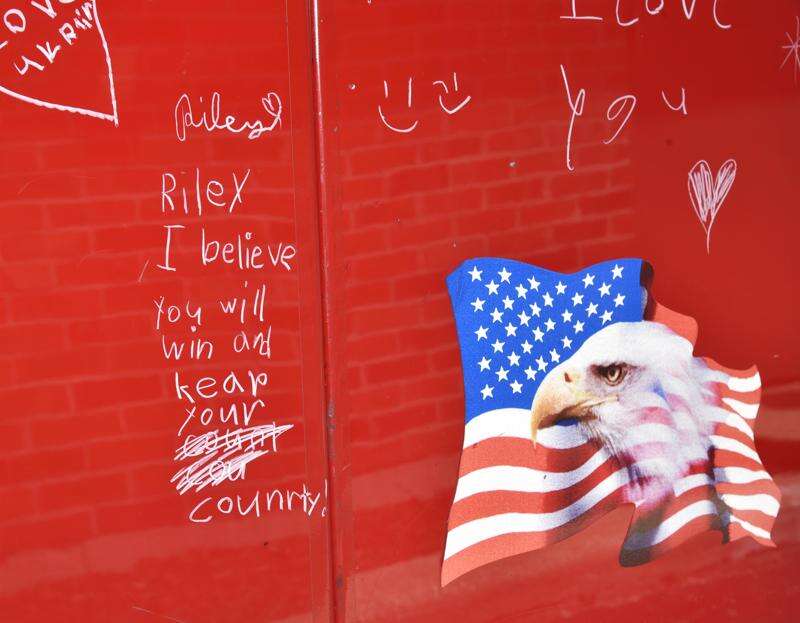 LOVE
UKRAiN
I LOVE
you
Riley
RileY
I believe
you will
win and
keap
your
counrty!